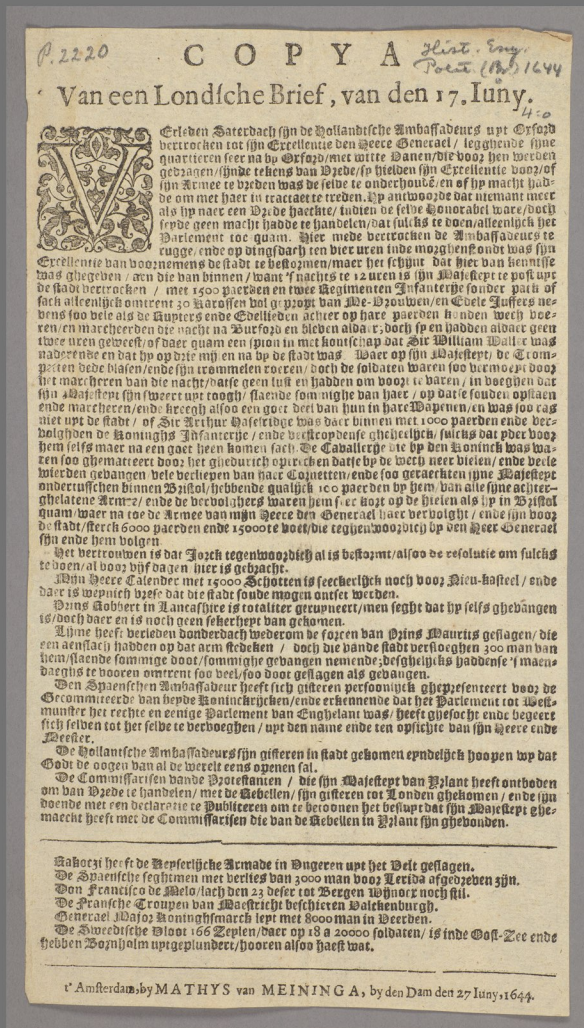 P. 2220
Hist. Eng.
1644
COPYA
Van een Londsche Brief, van den 17. Iuny.
4:o
VErleden Saterdach sijn de Hollandtsche Ambassadeurs uyt Oxford
vertrocken tot sijn Excellentie den Heere Generael / legghende sijne
quartieren seer na by Oxford / met witte Vanen / die voor hen werden
gedragen / sijnde tekens van Vrede / sy hielden sijn Excellentie voor / of
sijn Armee te vreden was de selve te onderhoudē / en of hy macht had-
de om met haer in tractaet te treden. Hy antwoorde dat niemant meer
als hy naer een Vrede haeckte / indien de selve Honorabel ware / doch
seyde geen macht hadde te handelen / dat sulcks te doen / alleenlijck het
Parlement toe quam. Hier mede vertrocken de Ambassadeurs te
rugge / ende op dingsdach ten vier uren inde morghenstondt was sijn
Excellentie van voornemens de stadt te bestormen / maer het schijnt dat hier van kennisse
was ghegeven / aen die van binnen / want 's nachts te 12 uren is sijn Majesteyt te post uyt
de stadt vertrocken / met 1500 paerden en twee Regimenten Infanterije sonder pack of
sack alleenlijck omtrent 30 Karossen vol gepropt van Me-Vrouwen / en Edele Juffers ne-
vens soo vele als de Ruyters ende Edellieden achter op hare paerden konden wech voe-
ren / en marcheerden die nacht na Burford en bleven aldaer; doch sy en hadden aldaer geen
twee uren geweest / of daer quam een spion in met kontschap dat Sir William Waller was
naderende en dat hy op drie mijlen na by de stadt was. Waer op sijn Majesteyt / de Trom-
petten dede blasen / ende sijn trommelen roeren / doch de soldaten waren soo vermoeyt door
het marcheren van die nacht / datse geen lust en hadden om voort te varen / in voeghen dat
sijn Majesteyt sijn sweert uyt toogh / slaende sommighe van haer / op datse souden opstaen
ende marcheren / ende kreegh alsoo een goet deel van hun in hare Wapenen / en was soo ras
niet uyt de stadt / of Sir Arthur Haselridge was daer binnen met 1000 paerden ende ver-
volghden de Koninghs Infanterije / ende verstroydense gheheelijck / sulcks dat yder voor
hem selfs maer na een goet heen komen sach. De Cavallerije die by den Koninck was wa-
ren soo ghematteert door het ghedurich optrecken datse by de wech neer vielen / ende vele
wierden gevangen / vele verliepen van haer Cornetten / ende soo geraeckten sijne Majesteyt
ondertusschen binnen Bristol / hebbende qualijck 100 paerden by hem / van alle sijne achter-
ghelatene Armee / ende de vervolghers waren hem seer kort op de hielen als hy in Bristol
quam / waer na toe de Armee van mijn Heere den Generael haer vervolght / ende sijn voor
de stadt / sterck 6000 paerden ende 15000 te voet / die teghenwoordich by den Heer Generael
sijn ende hem volgen.
Het vertrouwen is dat Jorck tegenwoordich al is bestormt / alsoo de resolutie om sulcks
te doen / al voor vijf dagen hier is gebracht.
Mijn Heere Calender met 15000 Schotten is seeckerlijck noch voor Nieu-kasteel / ende
daer is weynich vrese dat die stadt soude mogen ontset werden.
Prins Robbert in Lancashire is totaliter geruyneert / men seght dat hy selfs ghevangen
is / doch daer en is noch geen sekerheyt van gekomen.
Lijme heeft verleden donderdach wederom de forcen van Prins Maurits geslagen / die
een aenslach hadden op dat arm stedeken / doch die vande stadt versloeghen 300 man van
hem / slaende sommige doot / sommighe gevangen nemende; desghelijcks haddense 's maen-
daeghs te vooren omtrent soo veel / soo doot geslagen als gevangen.
Den Spaenschen Ambassadeur heeft sich gisteren persoonlijck ghepresenteert voor de
Gecommitteerde van beyde Koninckrijcken / ende erkennende dat het Parlement tot West-
munster het rechte en eenige Parlement van Enghelant was / heeft ghesocht ende begeert
sich selven tot het selve te vervoeghen / uyt den name ende ten opsichte van sijn Heere ende
Meester.
De Hollantsche Ambassadeurs sijn gisteren in stadt gekomen eyndelijck hoopen wy dat
Godt de oogen van al de werelt eens openen sal.
De Commissarisen vande Protestanten / die sijn Majesteyt van Yrlant heeft ontboden
om van Vrede te handelen / met de Rebellen / sijn gisteren tot Londen ghekomen / ende sijn
doende met een declaratie te Publiceren om te betoonen het besluyt dat sijn Majesteyt ghe-
maeckt heeft met de Commissarisen die van de Rebellen in Yrlant sijn ghevonden.
Rakoczi heeft de Keyserlijcke Armade in Ungeren uyt het Velt geslagen.
De Spaensche seghtmen met verlies van 3000 man voor Lerida afgedreven zijn.
Don Francisco de Melo / lach den 23 deser tot Bergen Wijnocx noch stil.
De Fransche Troupen van Maestricht beschieten Valckenburgh.
Generael Major Koninghsmarck leyt met 8000 man in Veerden.
De Sweedtsche Vloot 166 Zeylen / daer op 18 a 20000 soldaten / is inde Oost-Zee ende
hebben Bornholm uytgeplundert / hooren alsoo haest wat.
t'Amsterdam, by MATHYS van MEININGA, by den Dam den 27 Iuny, 1644.